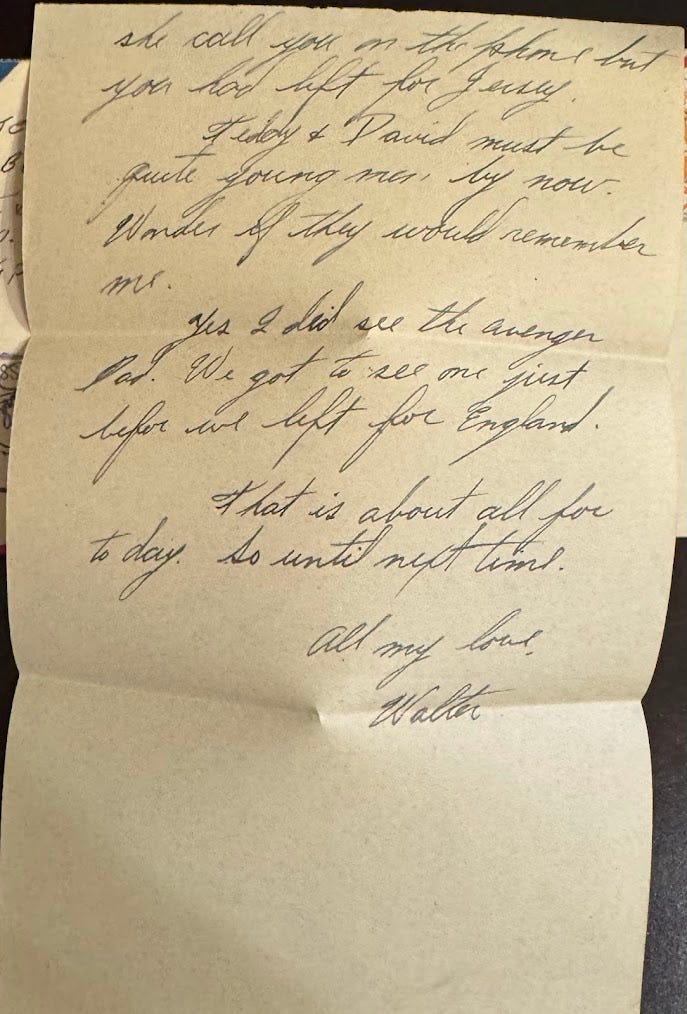 she call you on the phone but
you had left for Jersey.
Teddy & David must be
quite young men by now.
Wonder if they would remember
me.
Yes I did see the avenger
Dad. We got to see one just
befor we left for England.
That is about all for
to day. So until next time.
All my love.
Walter